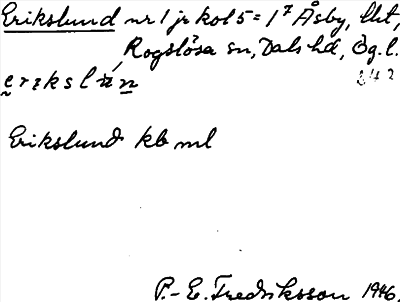 Erikslund nr 1 jr kol 5 = 1⁷ Åsby, lht,
Rogslösa sn, Dals hd, Ög.l.
242
erikslun
Erikslund kb ml
P.-E. Fredriksson 1946.